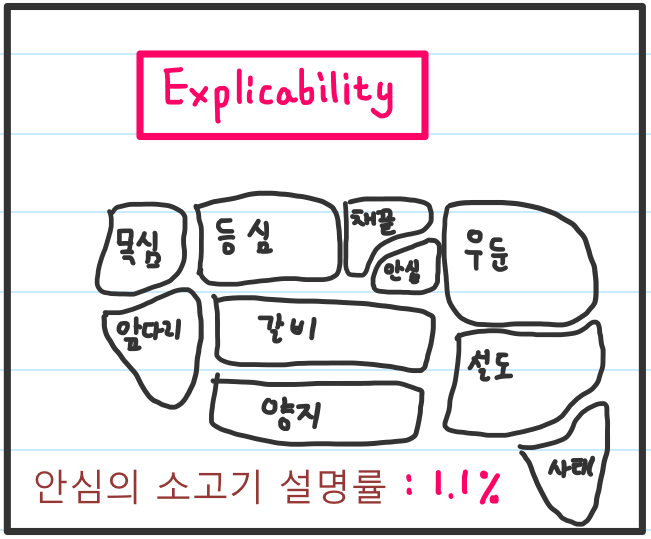 Explicability
목심
등심
채끝
안심
우둔
앞다리
갈비
설도
양지
사태
안심의 소고기 설명률 : 1.1%